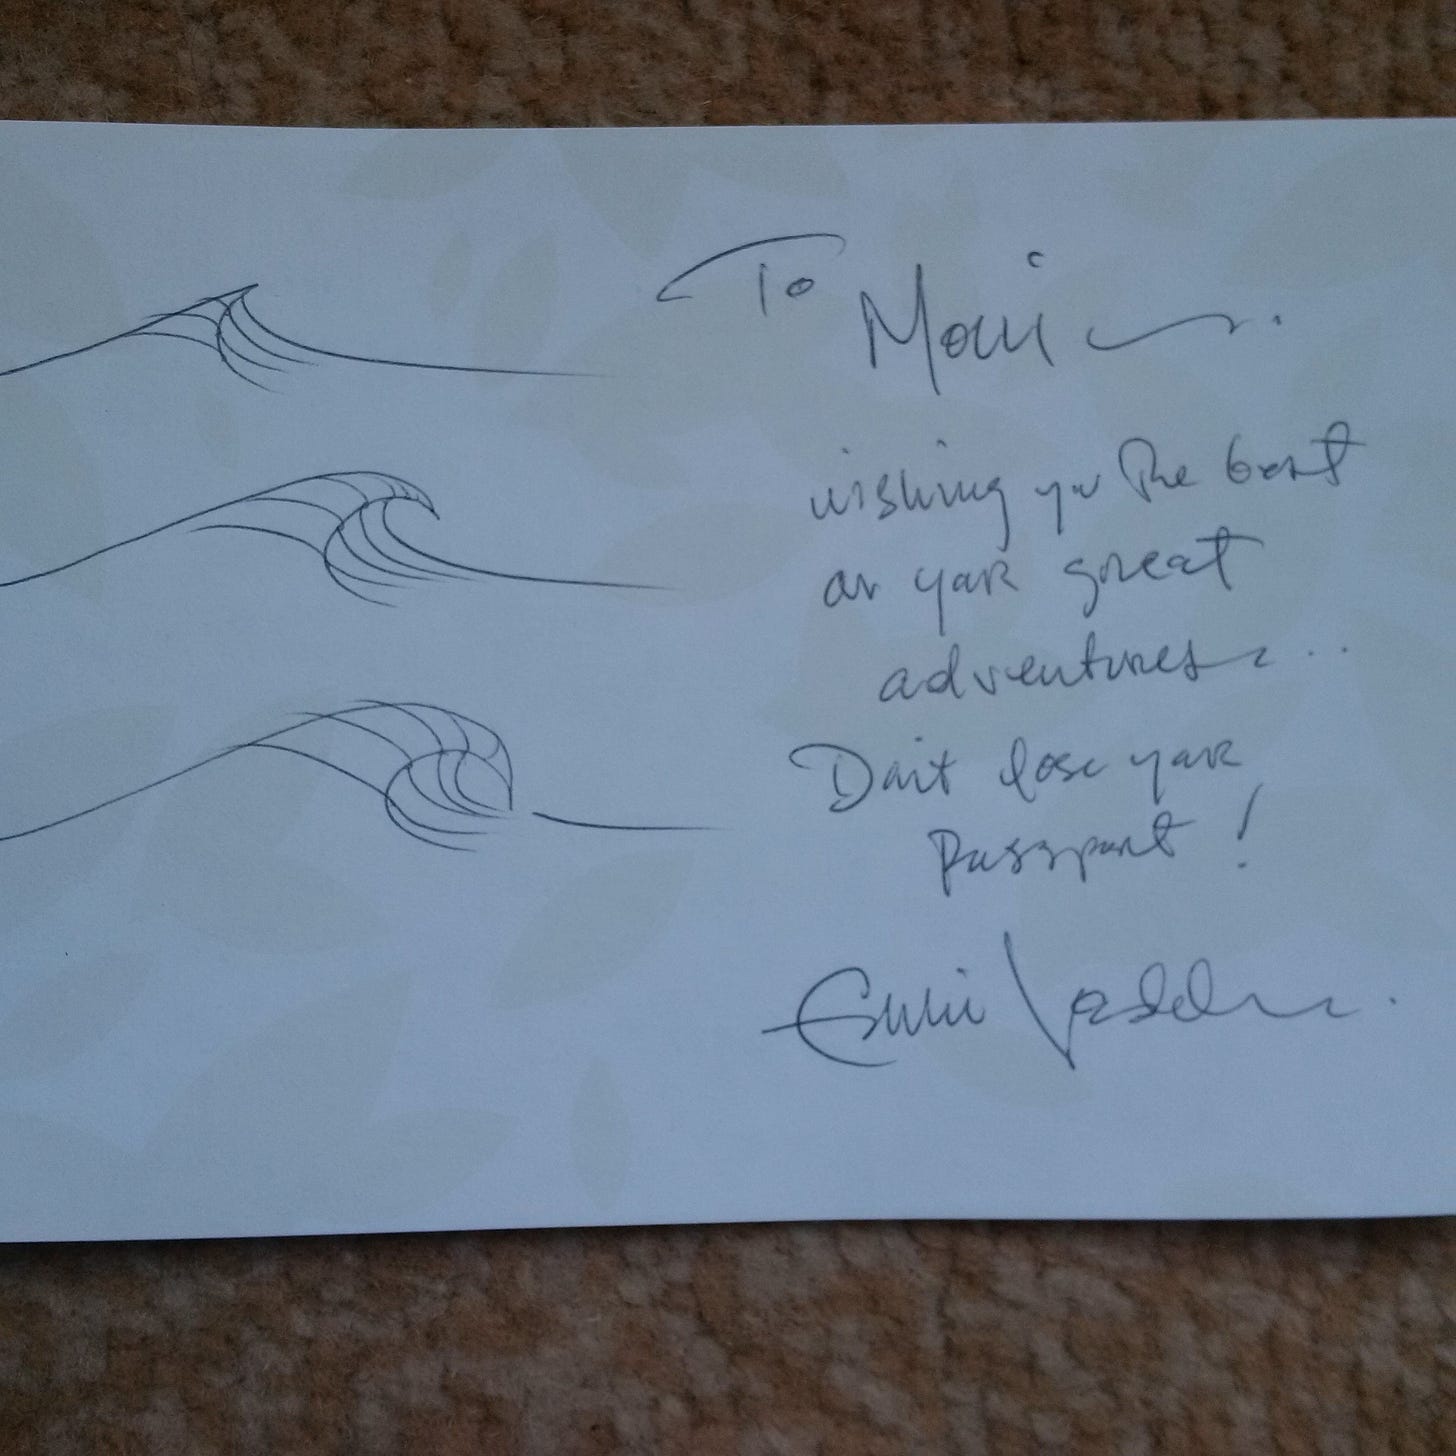 To Mori
wishing you the best
on your great
adventures...
Don't lose your
Passport!
Eddie Vedder.